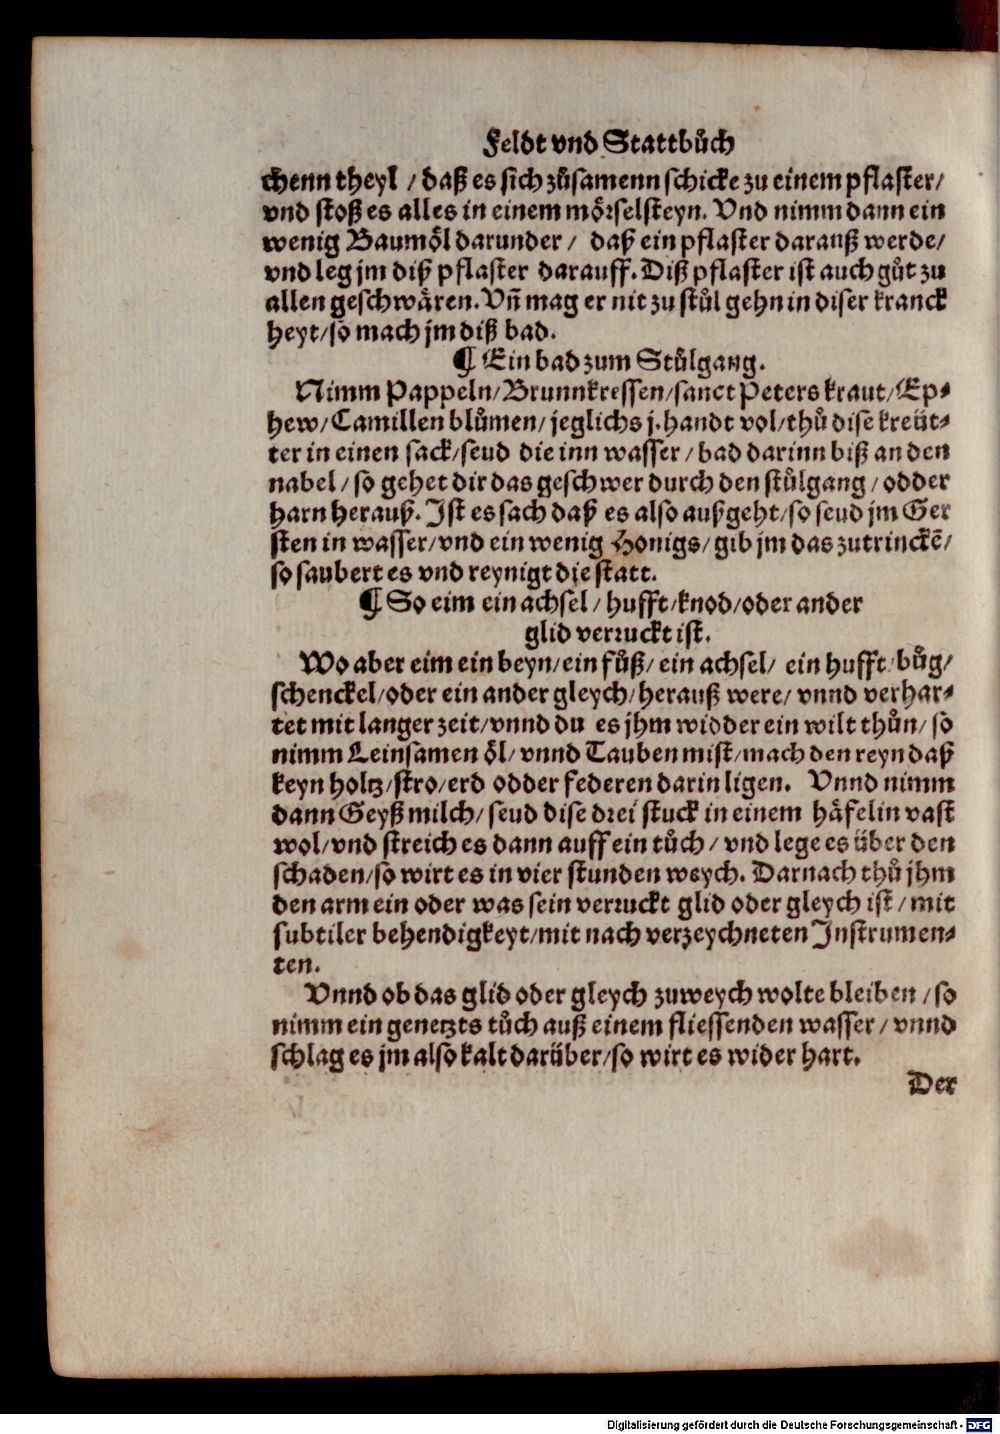 Feldt vnd Stattbůch
chenn theyl / daß es sich zůsamenn schicke zu einem pflaster/
vnd stoß es alles in einem mörselsteyn. Vnd nimm dann ein
wenig Baumöl darunder / daß ein pflaster darauß werde/
vnd leg jm diß pflaster darauff. Diß pflaster ist auch gůt zu
allen geschwären. Vñ mag er nit zu stůl gehn in diser kranck
heyt/so mach jm diß bad.
¶ Ein bad zum Stůlgang.
Nimm Pappeln/Brunnkressen/sanct Peters kraut/Ep-
hew/Camillen blůmen/jeglichs j. handt vol/thů dise kreüt-
ter in einen sack/seud die inn wasser / bad darinn biß an den
nabel / so gehet dir das geschwer durch den stůlgang / odder
harn herauß. Ist es sach daß es also außgeht/so seud jm Ger
sten in wasser/vnd ein wenig Honigs/gib jm das zutrinckẽ/
so saubert es vnd reynigt die statt.
¶ So eim ein achsel / hufft/knod/oder ander
glid verruckt ist.
Wo aber eim ein beyn/ein fůß/ein achsel/ ein hufft/bůg/
schenckel/oder ein ander gleych/herauß were/vnnd verhar-
tet mit langer zeit/vnnd du es jhm widder ein wilt thůn/so
nimm Leinsamen öl/vnnd Tauben mist/mach den reyn daß
keyn holtz/stro/erd odder federen darin ligen. Vnnd nimm
dann Geyß milch/seud dise drei stuck in einem häfelin vast
wol/vnd streich es dann auff ein tůch / vnd lege es über den
schaden/so wirt es in vier stunden weych. Darnach thů jhm
den arm ein oder was sein verruckt glid oder gleych ist / mit
subtiler behendigkeyt/mit nach verzeychneten Instrumen-
ten.
Vnnd ob das glid oder gleych zuweych wolte bleiben / so
nimm ein genetzts tůch auß einem fliessenden wasser / vnnd
schlag es jm also kalt darüber/so wirt es wider hart.
Der
Digitalisierung gefördert durch die Deutsche Forschungsgemeinschaft - DFG